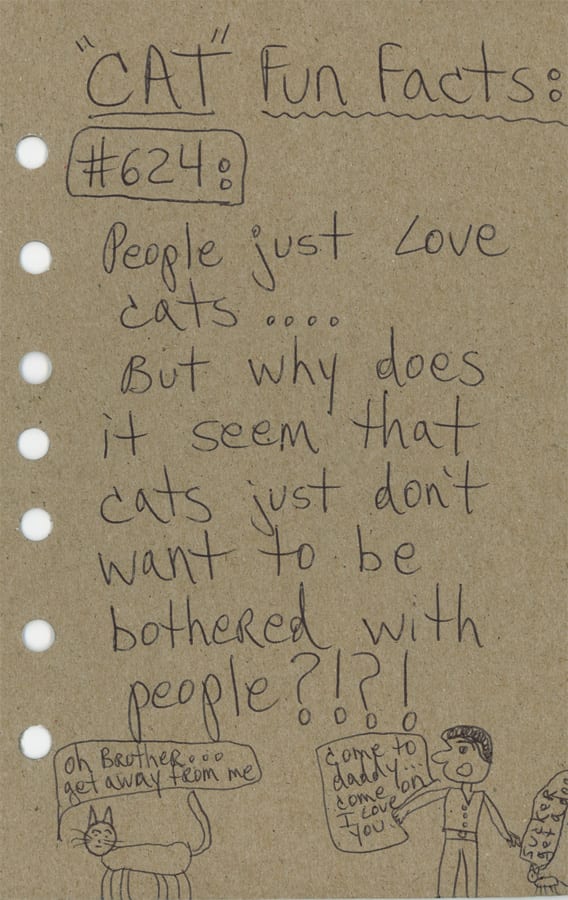 "CAT" Fun Facts:
#624:
People just Love
cats ....
But why does
it seem that
cats just don't
want to be
bothered with
people?!?!
oh Brother...
get away from me
come to
daddy...
come on
I Love
you.
sucker
get a do